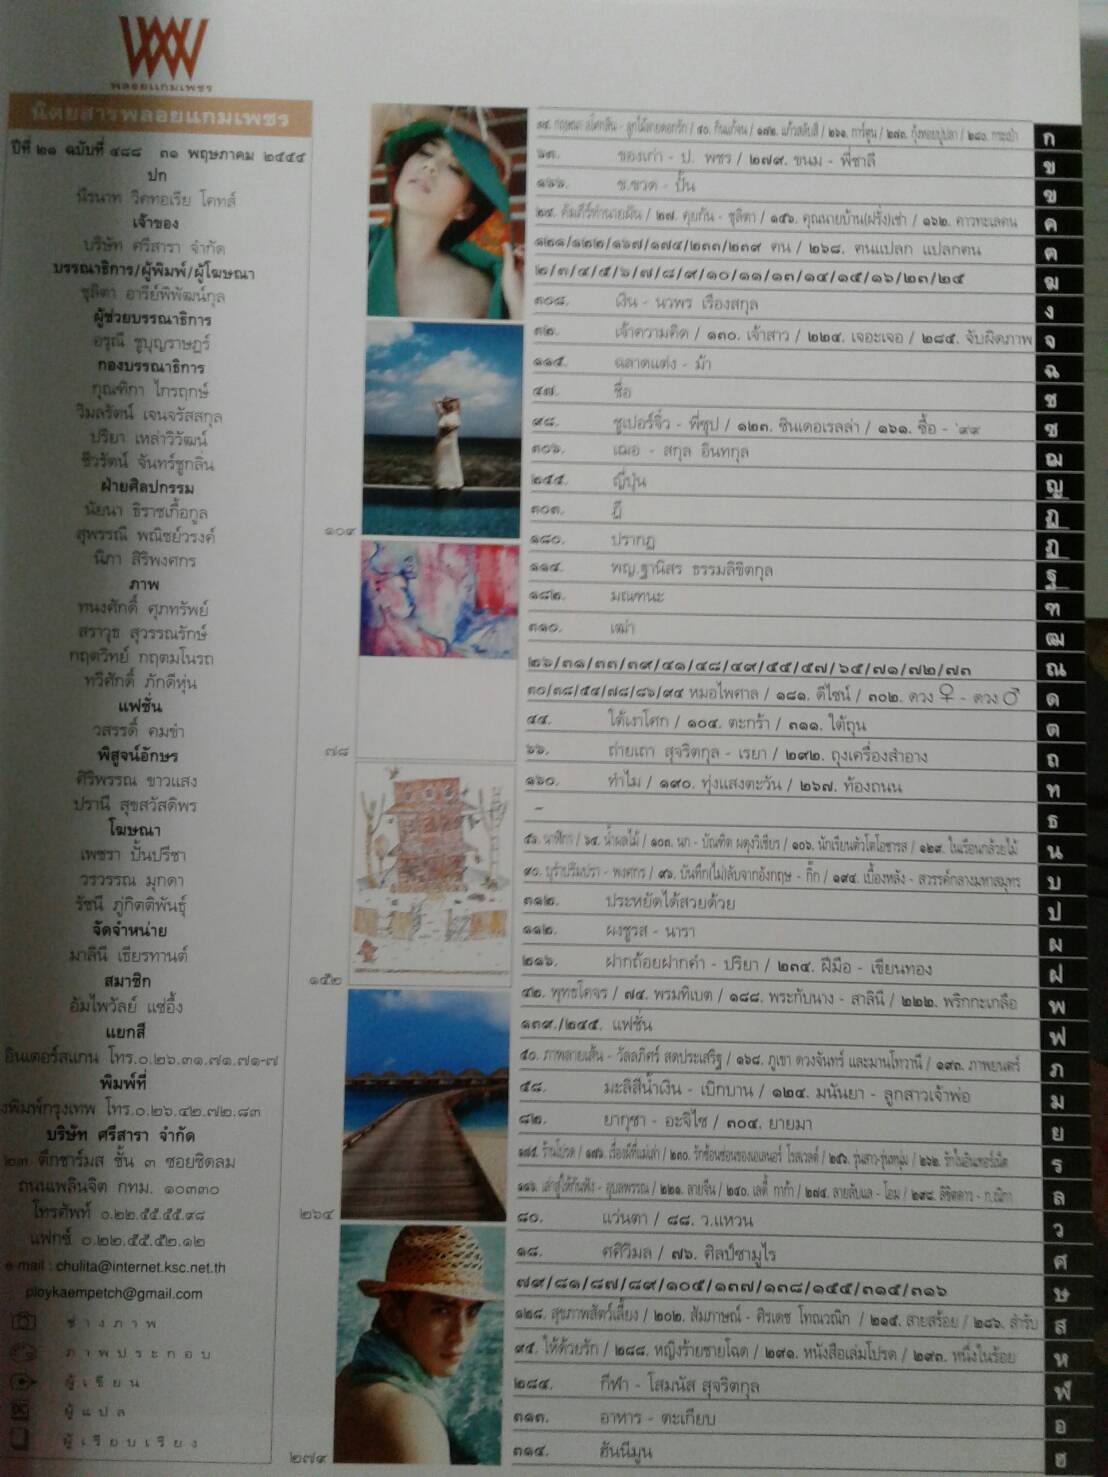 พลอยแกมเพชร
นิตยสารพลอยแกมเพชร
ปีที่ ๒๑ ฉบับที่ ๔๘๘ ๓๑ พฤษภาคม ๒๕๕๕
ปก
นิรนาท วิคทอเรีย โคทส์
เจ้าของ
บริษัท ศรีสารา จำกัด
บรรณาธิการ/ผู้พิมพ์/ผู้โฆษณา
ชุลิตา อารีย์พิพัฒน์กุล
ผู้ช่วยบรรณาธิการ
อรุณี ชูบุญราษฎร์
กองบรรณาธิการ
กุณฑิกา ไกรฤกษ์
วิมลรัตน์ เจนจรัสสกุล
ปริยา เหล่าวิวัฒน์
ชีวรัตน์ จันทร์ชูกลิ่น
ฝ่ายศิลปกรรม
นัยนา ธิราชเกื้อกูล
สุพรรณี พณิชย์วรงค์
นิภา สิริพงศกร
ภาพ
ทนงศักดิ์ ศุภทรัพย์
สราวุธ สุวรรณรักษ์
กฤตวิทย์ กฤตมโนรถ
ทวีศักดิ์ ภักดีหุ่น
แฟชั่น
วสรรดิ์ คมขำ
พิสูจน์อักษร
ศิริพรรณ ขาวแสง
ปรานี สุขสวัสดิพร
โฆษณา
เพชรา ปั้นปรีชา
วรวรรณ มุกดา
รัชนี ภู่กิตติพันธุ์
จัดจำหน่าย
มาลินี เธียรทานต์
สมาชิก
อัมไพวัลย์ แซ่อึ้ง
แยกสี
อินเตอร์สแกน โทร.๐.๒๖.๓๑.๗๑.๗๑-๗
พิมพ์ที่
งพิมพ์กรุงเทพ โทร.๐.๒๖.๔๒.๗๒.๘๓
บริษัท ศรีสารา จำกัด
๒๓ ตึกชาร์มส ชั้น ๓ ซอยชิดลม
ถนนเพลินจิต กทม. ๑๐๓๓๐
โทรศัพท์ ๐.๒๒.๕๕.๕๕.๙๘
แฟกซ์ ๐.๒๒.๕๕.๕๒.๑๒
e-mail : chulita@internet.ksc.net.th
ploykaempetch@gmail.com
ช่างภาพ
ภาพประกอบ
ผู้เขียน
ผู้แปล
ผู้เรียบเรียง
๑๐๙
๗๘
๑๕๒
๒๖๔
๒๗๙
ลูกไม้ลายดอกรัก / ๔๐. กินแก้จน / ๑๗๒. แก้วสลับสี / ๒๖๑. การ์ตูน / ๒๗๓. กุ้งหอยปูปลา / ๒๘๐. กระเป๋า ก
๖๓. ของเก่า - ป. พชร / ๒๗๙. ขนม - พี่ชาลี ข
๑๖๖. ฃ.ฃวด - ปั้น ฃ
๒๙. คัมภีร์ทำนายฝัน / ๒๗. คุยกัน - ชุลิตา / ๑๔๖. คุณนายบ้าน(ฝรั่ง)เช่า / ๑๖๒. คาวทะเลคน ค
๑๒๑/๑๒๒/๑๖๗/๑๗๔/๒๓๓/๒๓๙ ฅน / ๒๖๘. ฅนแปลก แปลกฅน ฅ
๒/๓/๔/๕/๖/๗/๘/๙/๑๐/๑๑/๑๓/๑๔/๑๕/๑๖/๒๓/๒๕ ฆ
๓๐๘. เงิน - นวพร เรืองสกุล ง
๓๒. เจ้าความคิด / ๑๓๐. เจ้าสาว / ๒๒๔. เจอะเจอ / ๒๘๕. จับผิดภาพ จ
๑๑๕. ฉลาดแต่ง - ม้า ฉ
๔๗. ชื่อ ช
๙๘. ซูเปอร์จิ๋ว - พี่ซุป / ๑๒๓. ซินเดอเรลล่า / ๑๖๑. ซื้อ - '๙๙ ซ
๓๐๖. เฌอ - สกุล อินทกุล ฌ
๒๕๕. ญี่ปุ่น ญ
๓๐๓. ฎี ฎ
๑๘๐. ปรากฏ ฏ
๑๑๔. พญ.ฐานิสร ธรรมลิขิตกุล ฐ
๑๘๒. มณฑนะ ฑ
๓๑๐. เฒ่า ฒ
๒๖/๓๑/๓๓/๓๙/๔๑/๔๘/๔๙/๕๕/๕๗/๖๕/๗๑/๗๒/๗๓ ณ
๓๐/๓๘/๕๔/๗๘/๘๖/๙๔ หมอไพศาล / ๑๘๑. ดีไซน์ / ๓๐๒. ดวง ♀ - ดวง ♂ ด
๔๔. ใต้เงาโศก / ๑๐๔. ตะกร้า / ๓๑๑. ใต้ถุน ต
๖๖. ถ่ายเถา สุจริตกุล - เรยา / ๒๙๒. ถุงเครื่องสำอาง ถ
๑๖๐. ทำไม / ๑๙๐. ทุ่งแสงตะวัน / ๒๖๗. ท้องถนน ท
- ธ
๕๖. นาฬิกา / ๖๔. น้ำผลไม้ / ๑๐๓. นก - บัณฑิต ผดุงวิเชียร / ๑๐๖. นักเรียนตัวโตโอซารส / ๑๒๙. ในเรือนกล้วยไม้ น
๙๐. บุรำปรัมปรา - พงศกร / ๙๖. บันทึก(ไม่)ลับจากอังกฤษ - กิ๊ก / ๑๙๔. เบื้องหลัง - สวรรค์กลางมหาสมุทร บ
๓๑๒. ประหยัดได้สวยด้วย ป
๑๑๒. ผงชูรส - นารา ผ
๒๑๖. ฝากถ้อยฝากคำ - ปริยา / ๒๓๔. ฝีมือ - เขียนทอง ฝ
๔๒. พุทธโคจร / ๗๔. พรมทิเบต / ๑๘๘. พระกับนาง - สาลินี / ๒๒๒. พริกกะเกลือ พ
๑๓๙./๒๔๕. แฟชั่น ฟ
๕๐. ภาพลายเส้น - วัลลภิศร์ สดประเสริฐ / ๑๖๘. ภูเขา ดวงจันทร์ และม่านโทวานี / ๑๙๓. ภาพยนตร์ ภ
๕๘. มะลิสีน้ำเงิน - เบิกบาน / ๑๒๔. มนันยา - ลูกสาวเจ้าพ่อ ม
๘๒. ยากูซา - อะจิไซ / ๓๐๔. ยายมา ย
๑๗๕. ร้านโปรด / ๑๗๖. เรื่องผีที่แม่เล่า / ๒๓๐. รักซ้อนซ่อนของเอเลนอร์ โรสเวลต์ / ๒๕๖. รุ่นสาว-รุ่นหนุ่ม / ๒๖๒. รักในอินเทอร์เน็ต ร
๑๑๖. เล่าสู่ให้กันฟัง - อุบลพรรณ / ๒๒๑. ลายจีน / ๒๔๐. เลดี้ กาก้า / ๒๗๔. ลายลับแล - โอม / ๒๙๘. ลิขิตดาว - ก.ณิกา ล
๘๐. แว่นตา / ๘๘. ว.แหวน ว
๑๘. ศศิวิมล / ๗๖. ศิลป์ซามูไร ศ
๗๙/๘๑/๘๗/๘๙/๑๐๕/๑๓๗/๑๓๘/๑๕๕/๓๑๕/๓๑๖ ษ
๑๒๘. สุขภาพสัตว์เลี้ยง / ๒๐๒. สัมภาษณ์ - ศิรเดช โทณวณิก / ๒๑๕. สายสร้อย / ๒๘๖. สำรับ ส
๙๕. ให้ด้วยรัก / ๒๘๘. หญิงร้ายชายโฉด / ๒๙๑. หนังสือเล่มโปรด / ๒๙๓. หนึ่งในร้อย ห
๒๘๔. กีฬา - โสมนัส สุจริตกุล ฬ
๓๑๓. อาหาร - ตะเกียบ อ
๓๑๔. ฮันนีมูน ฮ